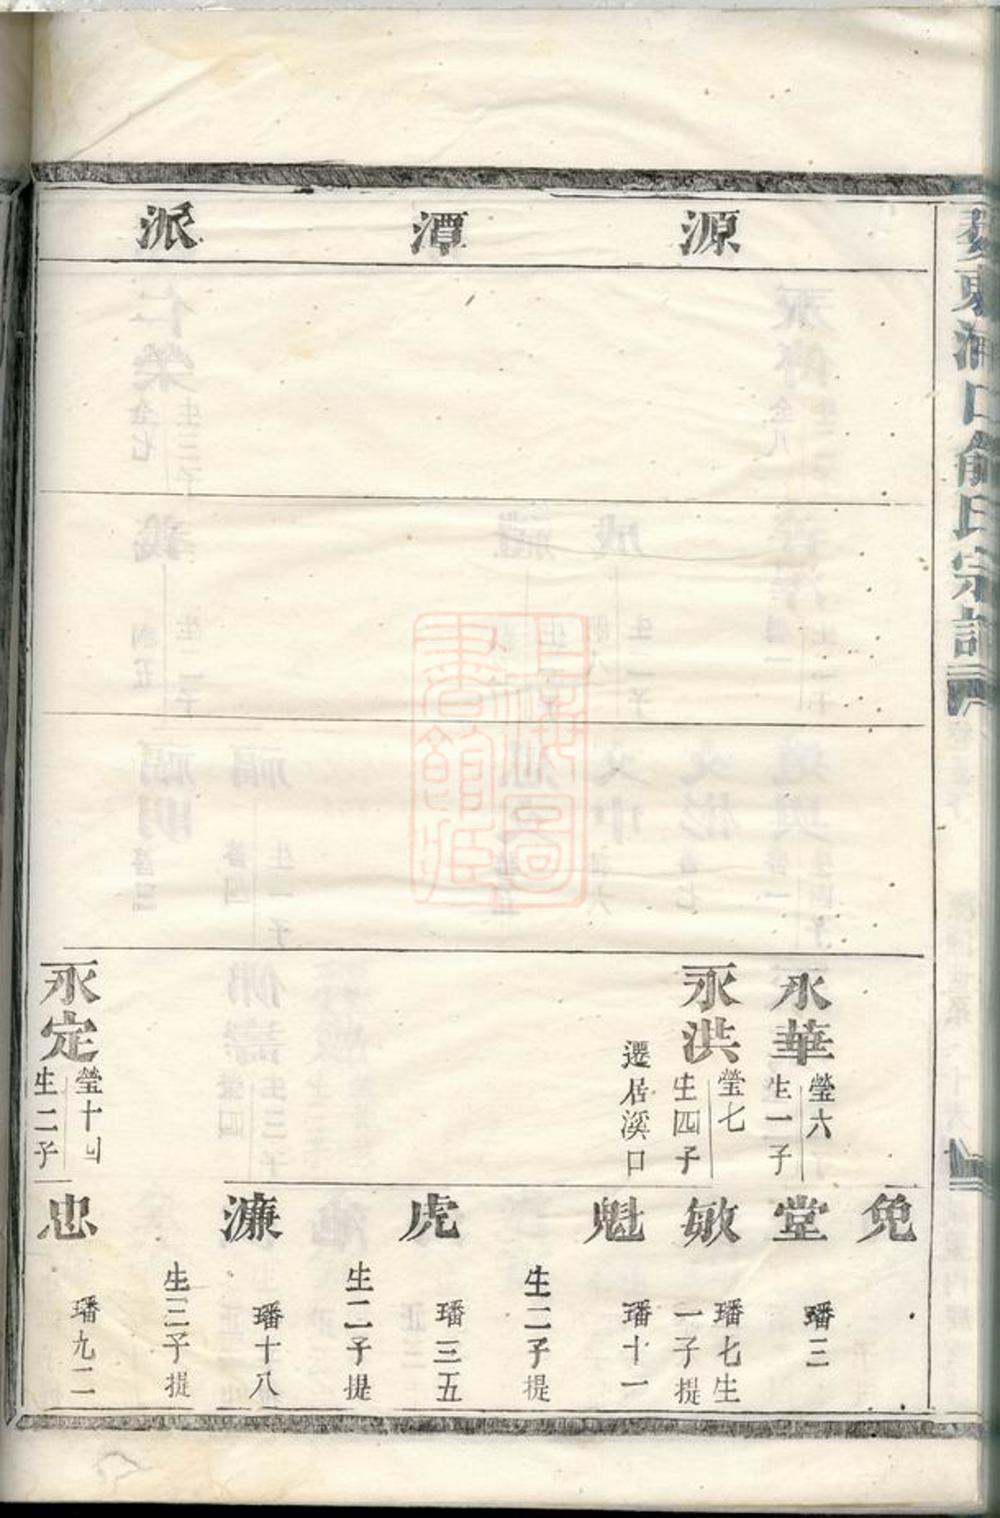 源潭派
永華
瑩六
生一子
永洪
瑩七
生四子
遷居溪口
永定
瑩十四
生二子
免
堂
璠三
敏
璠七生
一子提
魁
璠十一
生二子提
虎
璠三五
生二子提
濂
璠十八
生三子提
忠
璠九二
上海圖書館藏